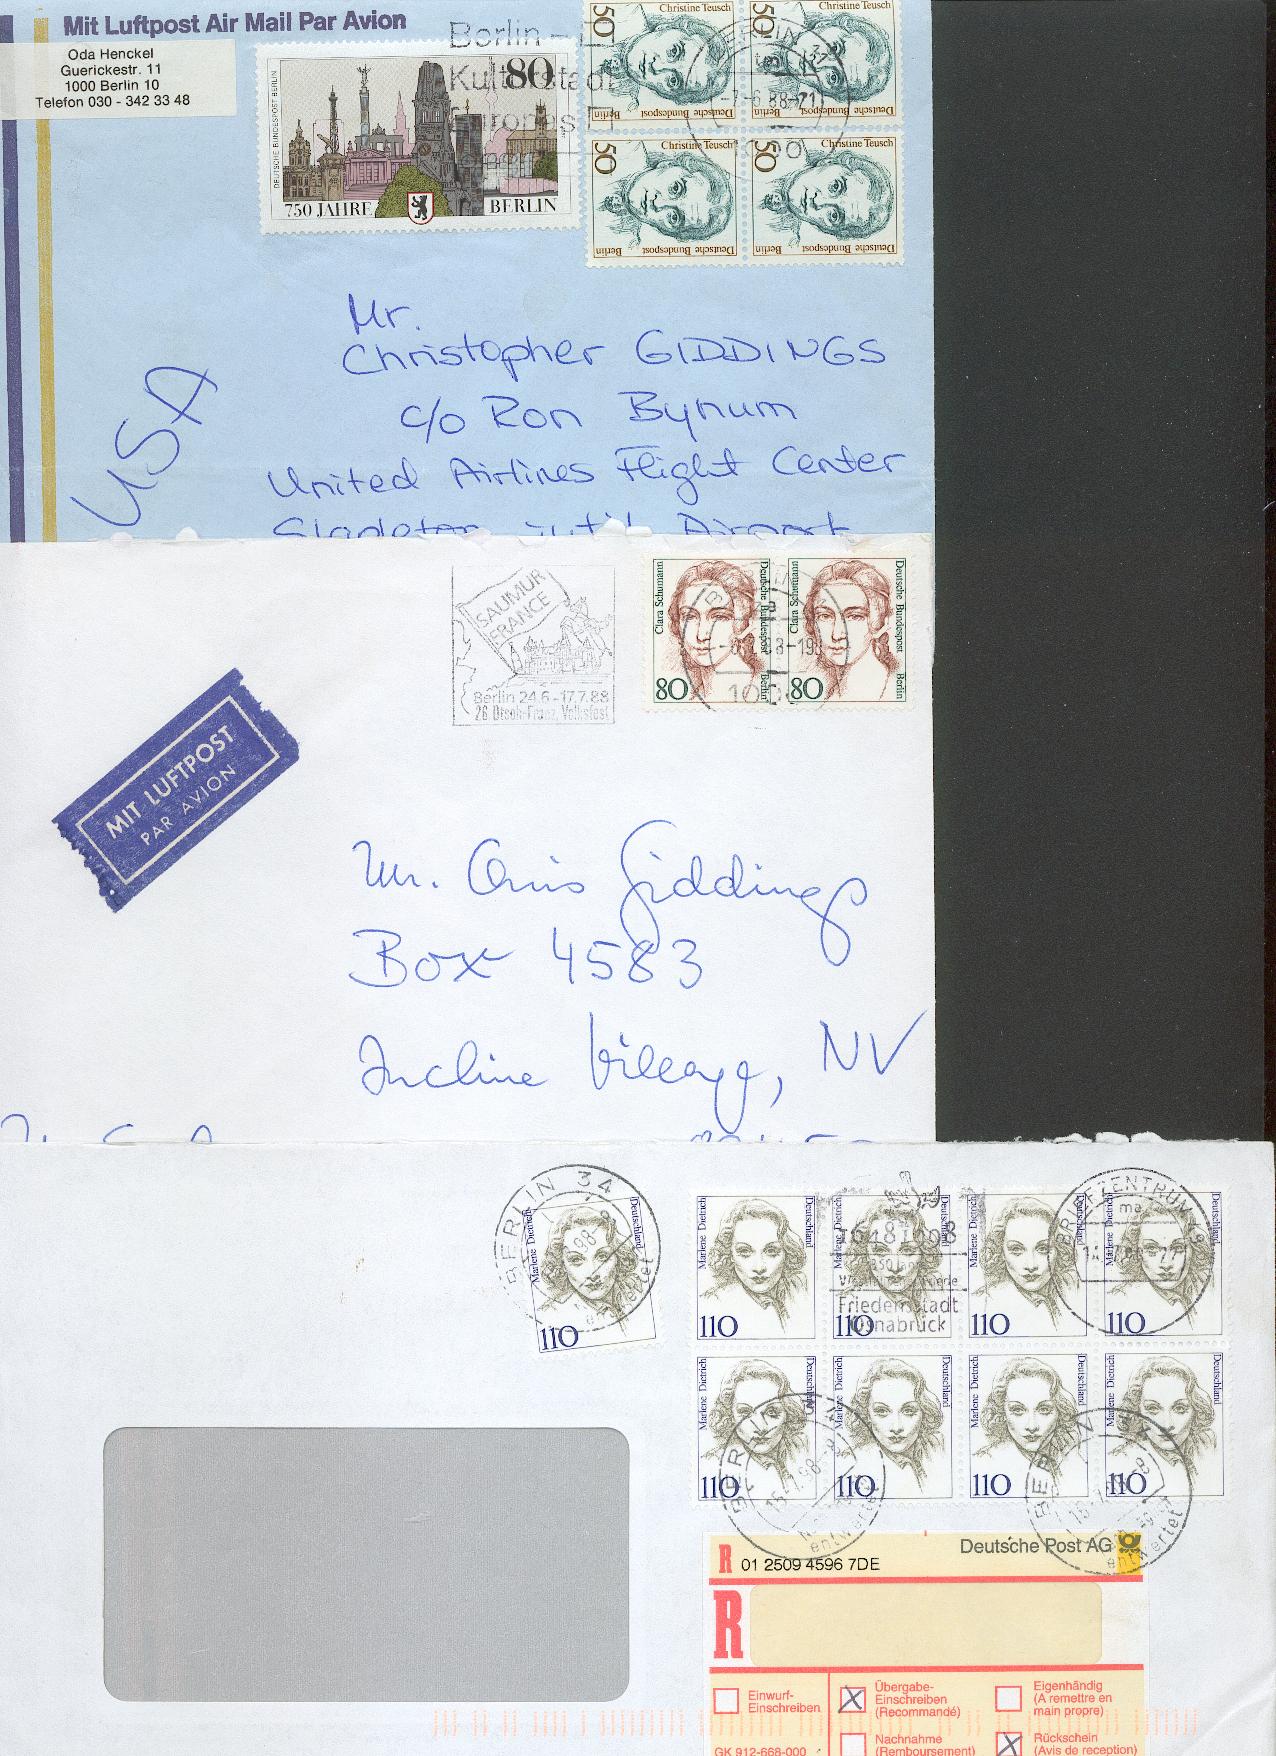 Mit Luftpost Air Mail Par Avion
Oda Henckel
Guerickestr. 11
1000 Berlin 10
Telefon 030 - 342 33 48
DEUTSCHE BUNDESPOST BERLIN
80
750 JAHRE BERLIN
Berlin -
Kulturstadt
Europas
50 Christine Teusch Deutsche Bundespost Berlin
50 Christine Teusch Deutsche Bundespost Berlin
50 Christine Teusch Deutsche Bundespost Berlin
50 Christine Teusch Deutsche Bundespost Berlin
BERLIN
-7.-6.88-21
Mr.
Christopher GIDDINGS
c/o Ron Bynum
United Airlines Flight Center
Stapleton Int'l. Airport
USA
SAUMUR
FRANCE
Berlin 24.6.-17.7.88
26. Dtsch-Franz. Volksfest
Clara Schumann Deutsche Bundespost Berlin 80
Clara Schumann Deutsche Bundespost Berlin 80
BERLIN
MIT LUFTPOST
PAR AVION
Mr. Chris Giddings
Box 4583
Incline Village, NV
BERLIN 34
entwertet
Marlene Dietrich Deutschland 110
Marlene Dietrich Deutschland 110
Marlene Dietrich Deutschland 110
Marlene Dietrich Deutschland 110
Marlene Dietrich Deutschland 110
1648 1998
350 Jahre
Westfälischer Friede
Friedensstadt
Osnabrück
BRIEFZENTRUM
ma
Marlene Dietrich Deutschland 110
Marlene Dietrich Deutschland 110
Marlene Dietrich Deutschland 110
Marlene Dietrich Deutschland 110
BERLIN
entwertet
BERLIN
entwertet
Deutsche Post AG
R 01 2509 4596 7DE
R
Einwurf-
Einschreiben
Übergabe-
Einschreiben
(Recommandé)
Eigenhändig
(A remettre en
main propre)
Nachnahme
(Remboursement)
Rückschein
(Avis de reception)
GK 912-668-000